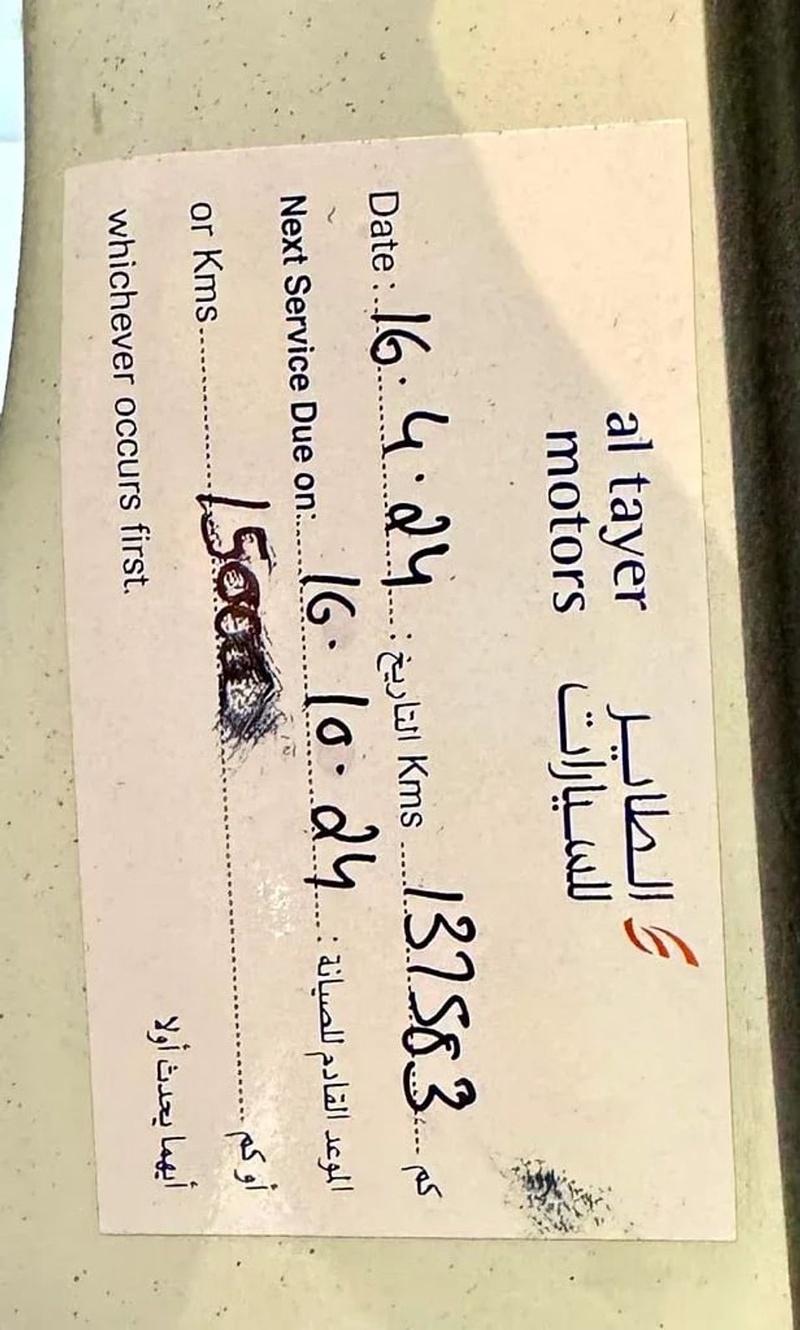 al tayer الطاير
motors للسيارات
Date: 16.4.24 التاريخ: Kms 137583 كم
Next Service Due on: 16.10.24 الموعد القادم للصيانة:
or Kms أو كم
whichever occurs first. أيهما يحدث أولا